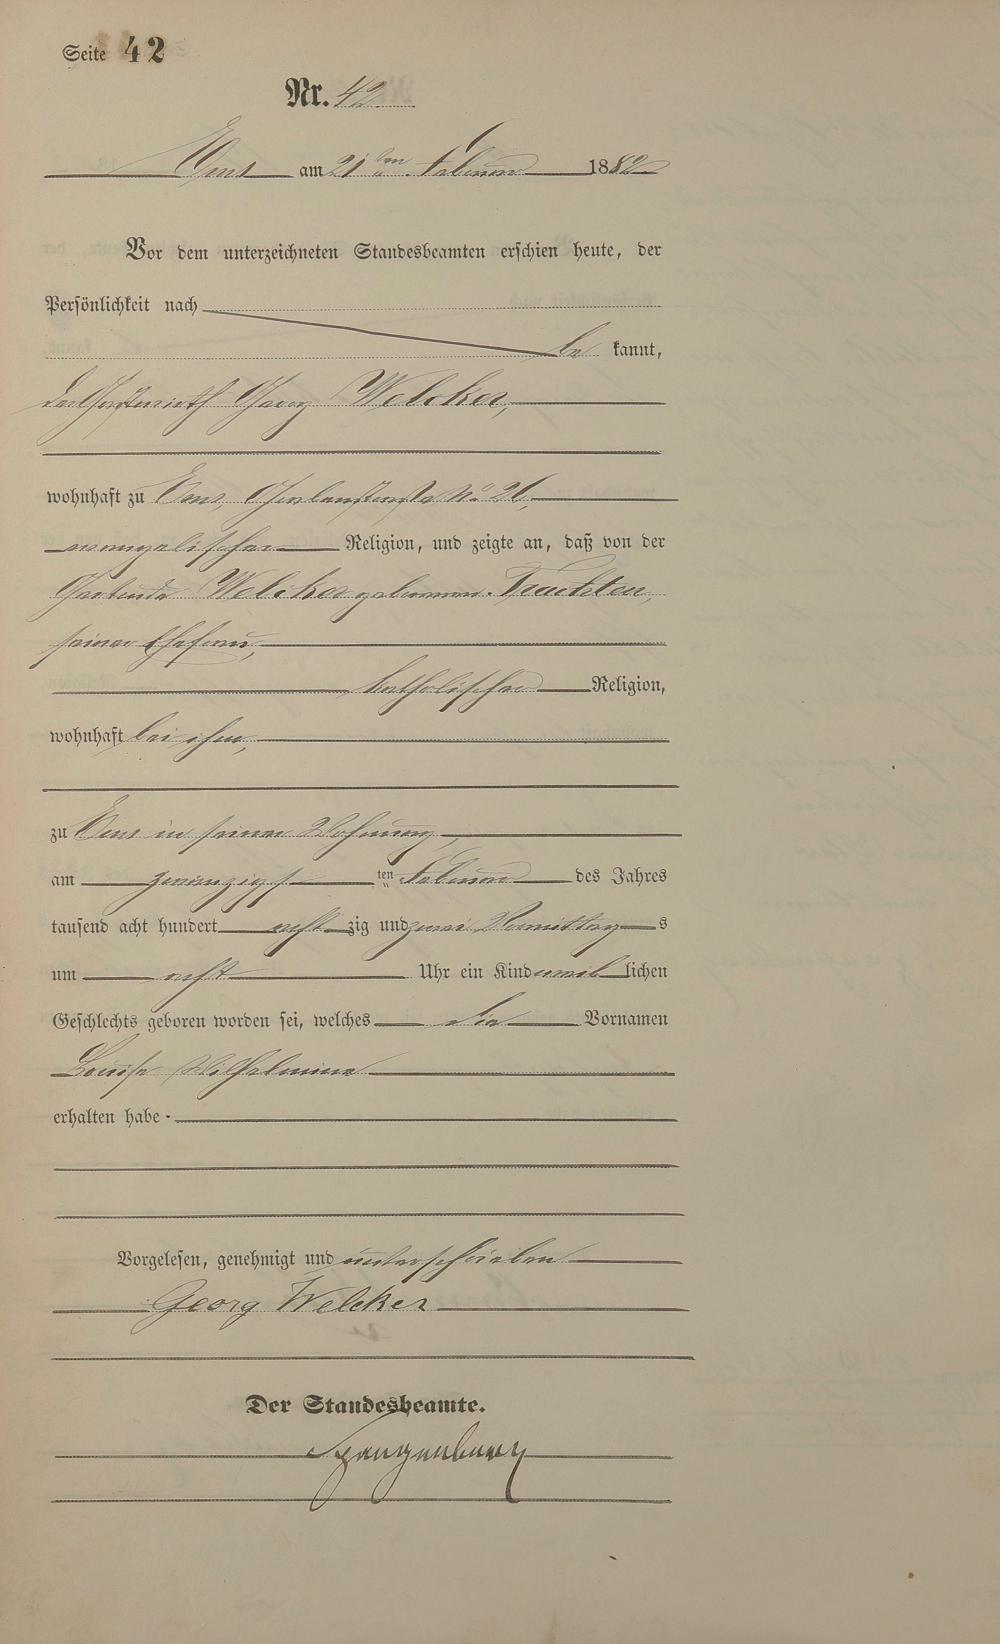 Seite 42
Nr. 42
Ems am 21ten Februar 1882
Vor dem unterzeichneten Standesbeamten erschien heute, der
Persönlichkeit nach
be kannt,
der Georg Welcker,
wohnhaft zu Ems, No. 26,
evangelischer Religion, und zeigte an, daß von der
Gertrude Welcker geborenen Trachten,
seiner Ehefrau,
katholischer Religion,
wohnhaft bei ihm,
zu Ems in seiner Wohnung,
am zwanzigsten Februar des Jahres
tausend acht hundert acht zig und zwei Vormittags
um acht Uhr ein Kind weiblichen
Geschlechts geboren worden sei, welches die Vornamen
Louise Wilhelmine
erhalten habe.
Vorgelesen, genehmigt und unterschrieben
Georg Welcker
Der Standesbeamte.
Spangenberg